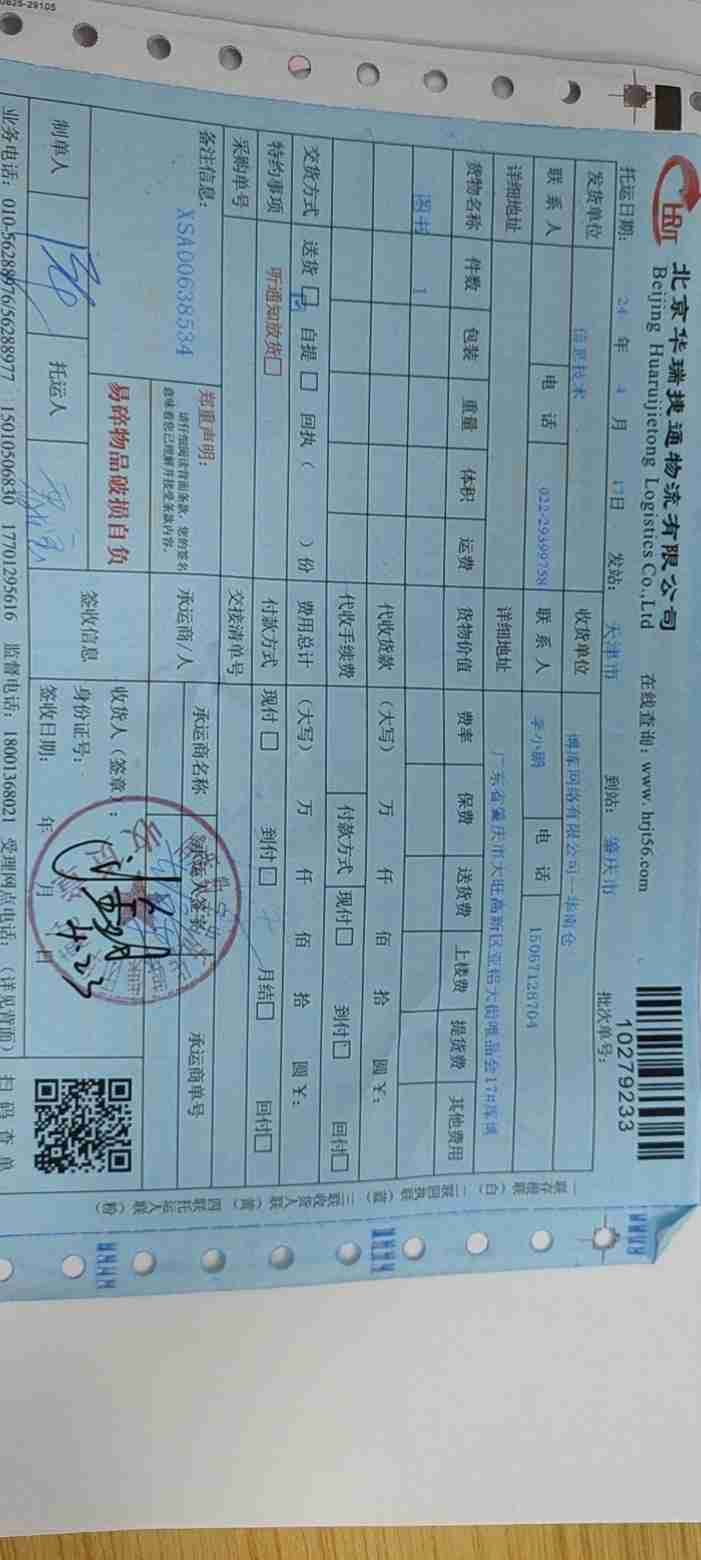 0825-29105
HRJT
北京华瑞捷通物流有限公司
Beijing Huaruijietong Logistics Co.,Ltd
在线查询：www.hrjt56.com
10279233
托运日期： 24 年 4 月 17日 发站： 天津市 到站： 肇庆市 批次单号：
发货单位 信息技术 收货单位 博库网络有限公司－华南仓
联系人 电话 022-29399758 联系人 李小鹏 电话 15067128704
详细地址 详细地址 广东省肇庆市大旺高新区亚铝大街唯品会17#库博
货物名称 件数 包装 重量 体积 运费 货物价值 费率 保费 送货费 上楼费 提货费 其他费用
图书 1
代收货款 （大写） 万 仟 佰 拾 圆￥：
代收手续费 付款方式 现付□ 到付□ 回付□
交货方式 送货□ 自提□ 回执（ ）份 费用总计 （大写） 万 仟 佰 拾 圆￥：
特约事项 听通知放货□ 付款方式 现付□ 到付□ 月结□ 回付□
采购单号 交接清单号
备注信息： XSA00638534
郑重声明：
请仔细阅读背面条款，您的签名
意味着您已理解并接受条款内容。
易碎物品破损自负
承运商/人 承运商名称 承运人签字 承运商单号
制单人 托运人
签收信息 收货人（签章）：
身份证号：
签收日期： 年 月 日
4.23
业务电话：010-56288976/56288977 15010506830 17701295616 监督电话：18001368021 受理网点电话：（详见背面） 扫码查单
一联存根联（白） 二联回执联（蓝） 三联收货人联（黄） 四联托运人联（粉）